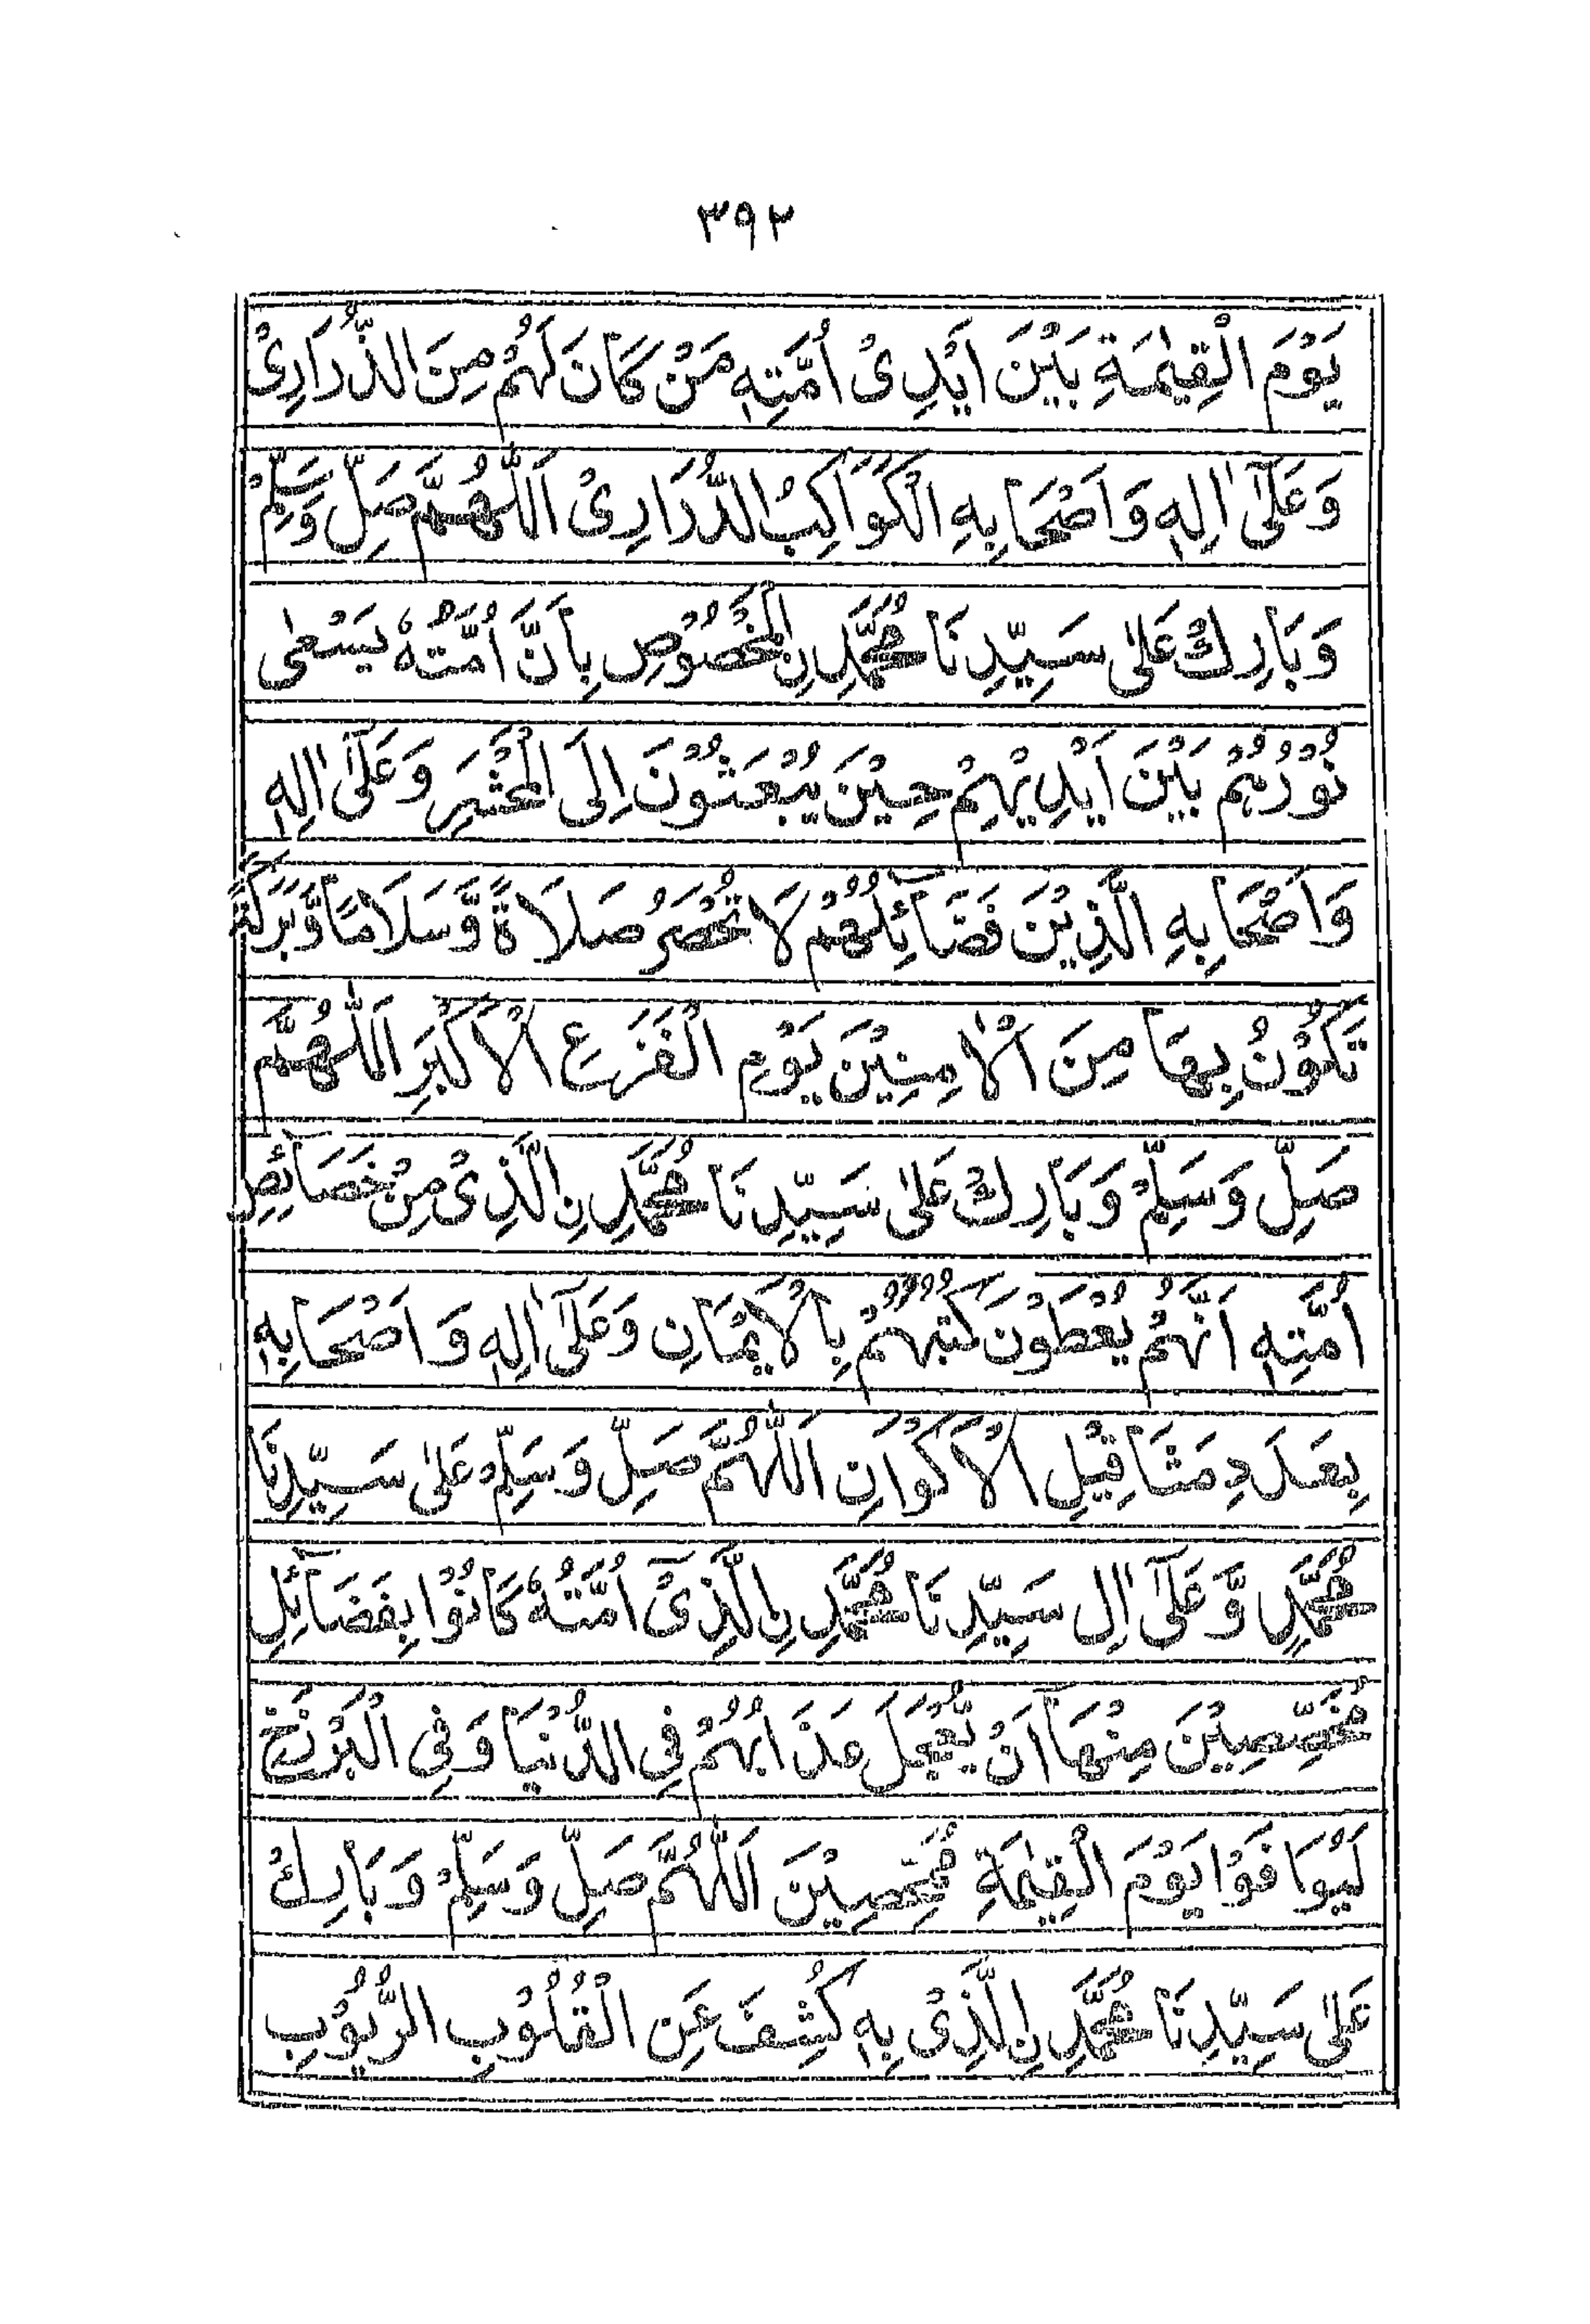 ٣٩٢
يَوْمَ الْقِيٰمَةِ بَيْنَ اَيْدِىْ اُمَّتِهٖ مَنْ كَانَ لَهُمْ مِنَ الذُّرَارِىْ
وَعَلٰٓى اٰلِهٖ وَاَصْحَابِهِ الْكَوَاكِبُ الدُّرَارِىْ اَللّٰهُمَّ صَلِّ وَسَلِّمْ
وَبَارِكْ عَلٰى سَيِّدِنَا مُحَمَّدِنِ الْمَخْصُوْصِ بِاَنَّ اُمَّتُهٗ يَسْعٰى
نُوْرُهُمْ بَيْنَ اَيْدِيْهِمْ حِيْنَ يُبْعَثُوْنَ اِلَى الْمَحْشَرِ وَعَلٰٓى اٰلِهٖ
وَاَصْحَابِهِ الَّذِيْنَ فَضَآئِلُهُمْ لَا تُحْصَرُ صَلَاةً وَّسَلَامًا وَّبَرَكَةً
تَكُوْنُ بِهَا مِنَ الْاٰمِنِيْنَ يَوْمِ الْفَزَعِ الْاَكْبَرِ اَللّٰهُمَّ
صَلِّ وَسَلِّمْ وَبَارِكْ عَلٰى سَيِّدِنَا مُحَمَّدِنِ الَّذِىْ مِنْ خَصَائِصِ
اُمَّتِهٖ اَنَّهُمْ يُعْطَوْنَ كُتُبُهُمْ بِالْاَيْمَانِ وَعَلٰٓى اٰلِهٖ وَاَصْحَابِهٖ
بِعَدَدِ مَثَاقِيْلِ الْاَكْوَانِ اَللّٰهُمَّ صَلِّ وَسَلِّمْ عَلٰى سَيِّدِنَا
مُحَمَّدٍ وَّعَلٰٓى اٰلِ سَيِّدِنَا مُحَمَّدِنِ الَّذِىْٓ اُمَّتُهٗ كَانُوْا بِفَضَآئِلِ
مُخَصِّصِيْنَ مِنْهَآ اَنْ يُّعَجَّلَ عَذَابُهُمْ فِى الدُّنْيَا وَفِى الْبَرْزَخِ
لَيُوَافَوْا يَوْمَ الْقِيٰمَةِ مُمَحَّصِيْنَ اَللّٰهُمَّ صَلِّ وَسَلِّمْ وَبَارِكْ
عَلٰى سَيِّدِنَا مُحَمَّدِنِ الَّذِىْ بِهٖ كُشِفَ عَنِ الْقُلُوْبِ الرُّيُوْبِ